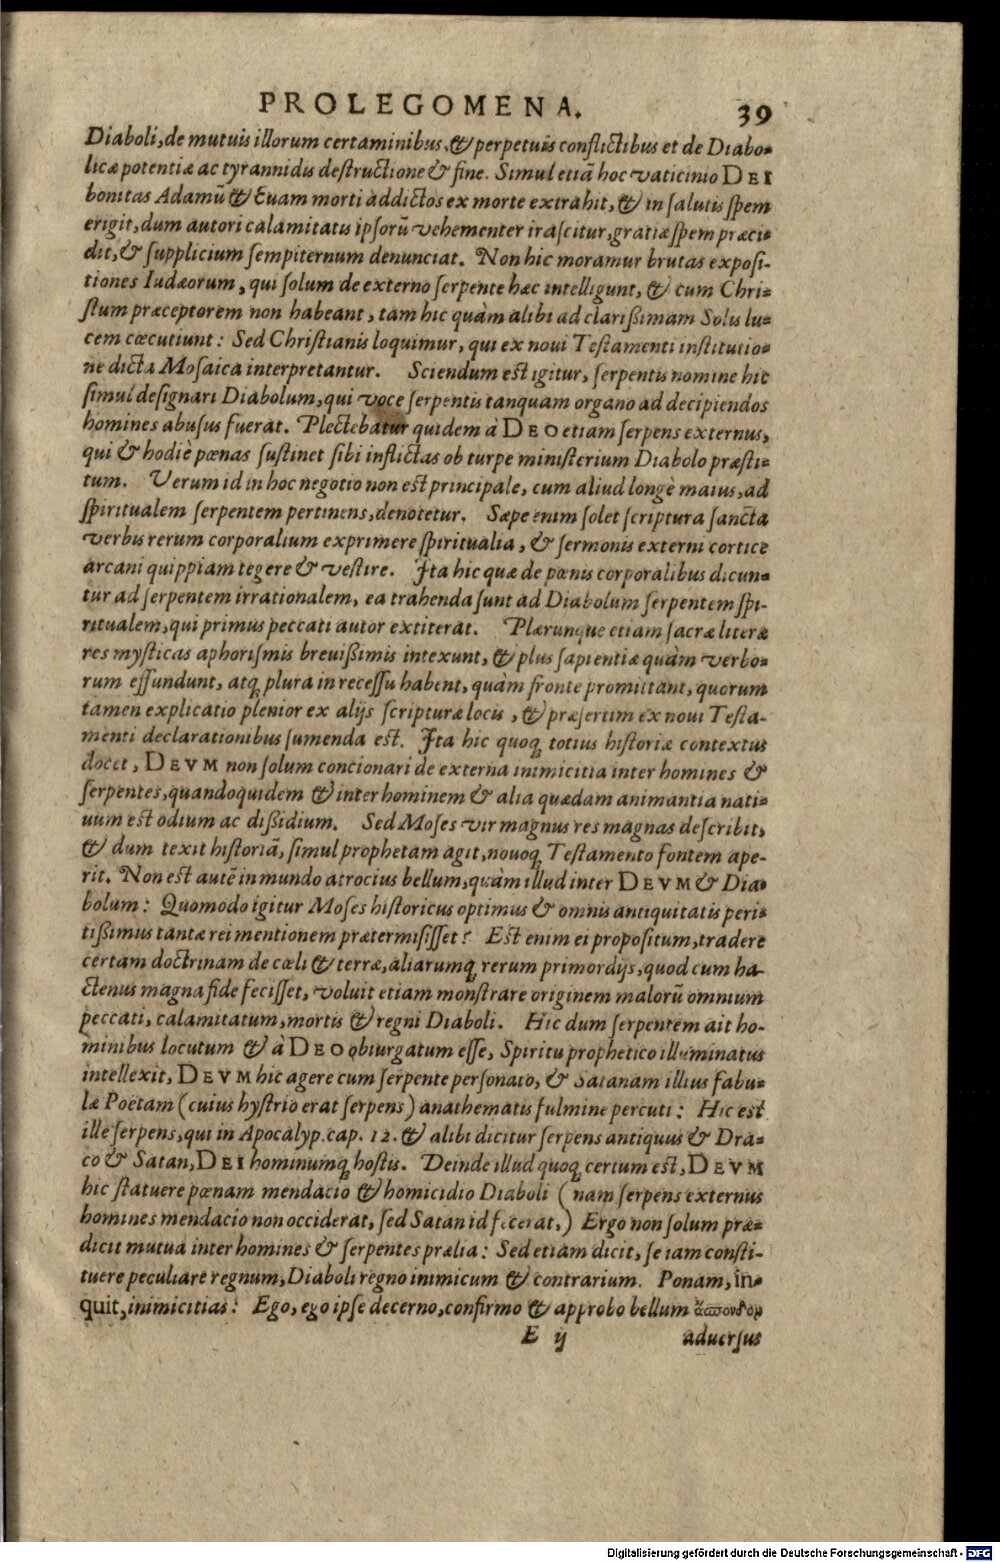 PROLEGOMENA. 39
Diaboli, de mutuis illorum certaminibus, & perpetuis conflictibus et de Diabo-
licæ potentiæ ac tyrannidis destructione & fine. Simul etiã hoc vaticinio DEI
bonitas Adamũ & Euam morti addictos ex morte extrahit, & in salutis spem
erigit, dum autori calamitatis ipsorũ vehementer irascitur, gratiæ spem præci-
dit, & supplicium sempiternum denunciat. Non hic moramur brutas exposi-
tiones Iudæorum, qui solum de externo serpente hæc intelligunt, & cum Chri-
stum præceptorem non habeant, tam hic quàm alibi ad clarißimam Solis lu-
cem cœcutiunt: Sed Christianis loquimur, qui ex noui Testamenti institutio-
ne dicta Mosaica interpretantur. Sciendum est igitur, serpentis nomine hic
simul designari Diabolum, qui voce serpentis tanquam organo ad decipiendos
homines abusus fuerat. Plectebatur quidem à DEO etiam serpens externus,
qui & hodiè pœnas sustinet sibi inflictas ob turpe ministerium Diabolo præsti-
tum. Verum id in hoc negotio non est principale, cum aliud longè maius, ad
spiritualem serpentem pertinens, denotetur. Sæpe enim solet scriptura sancta
verbis rerum corporalium exprimere spiritualia, & sermonis externi cortice
arcani quippiam tegere & vestire. Ita hic quæ de pœnis corporalibus dicun-
tur ad serpentem irrationalem, ea trahenda sunt ad Diabolum serpentem spi-
ritualem, qui primus peccati autor extiterat. Plærunque etiam sacræ literæ
res mysticas aphorismis breuißimis intexunt, & plus sapientiæ quàm verbo-
rum effundunt, atq; plura in recessu habent, quàm fronte promittant, quorum
tamen explicatio plenior ex alijs scripturæ locis, & præsertim ex noui Testa-
menti declarationibus sumenda est. Ita hic quoq; totius historiæ contextus
docet, DEVM non solum concionari de externa inimicitia inter homines &
serpentes, quandoquidem & inter hominem & alia quædam animantia nati-
uum est odium ac dißidium. Sed Moses vir magnus res magnas describit,
& dum texit historiã, simul prophetam agit, nouoq; Testamento fontem ape-
rit. Non est autẽ in mundo atrocius bellum, quàm illud inter DEVM & Dia-
bolum: Quomodo igitur Moses historicus optimus & omnis antiquitatis peri-
tißimus tantæ rei mentionem prætermisisset? Est enim ei propositum, tradere
certam doctrinam de cœli & terræ, aliarumq; rerum primordijs, quod cum ha-
ctenus magna fide fecisset, voluit etiam monstrare originem malorũ omnium
peccati, calamitatum, mortis & regni Diaboli. Hic dum serpentem ait ho-
minibus locutum & à DEO obiurgatum esse, Spiritu prophetico illuminatus
intellexit, DEVM hic agere cum serpente personato, & Satanam illius fabu-
læ Poëtam (cuius hystrio erat serpens) anathematis fulmine percuti: Hic est
ille serpens, qui in Apocalyp. cap. 12. & alibi dicitur serpens antiquus & Dra-
co & Satan, DEI hominumq; hostis. Deinde illud quoq; certum est, DEVM
hic statuere pœnam mendacio & homicidio Diaboli (nam serpens externus
homines mendacio non occiderat, sed Satan id fecerat,) Ergo non solum præ-
dicit mutua inter homines & serpentes prælia: Sed etiam dicit, se iam consti-
tuere peculiare regnum, Diaboli regno inimicum & contrarium. Ponam, in-
quit, inimicitias: Ego, ego ipse decerno, confirmo & approbo bellum ἄσπονδον
E ij aduersus
Digitalisierung gefördert durch die Deutsche Forschungsgemeinschaft - DFG